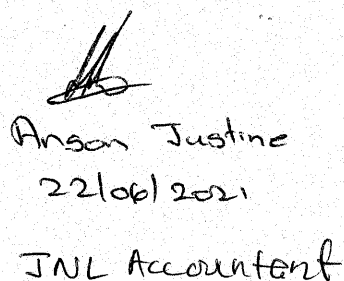 Anson Justine
22/06/2021
JNL Accountant